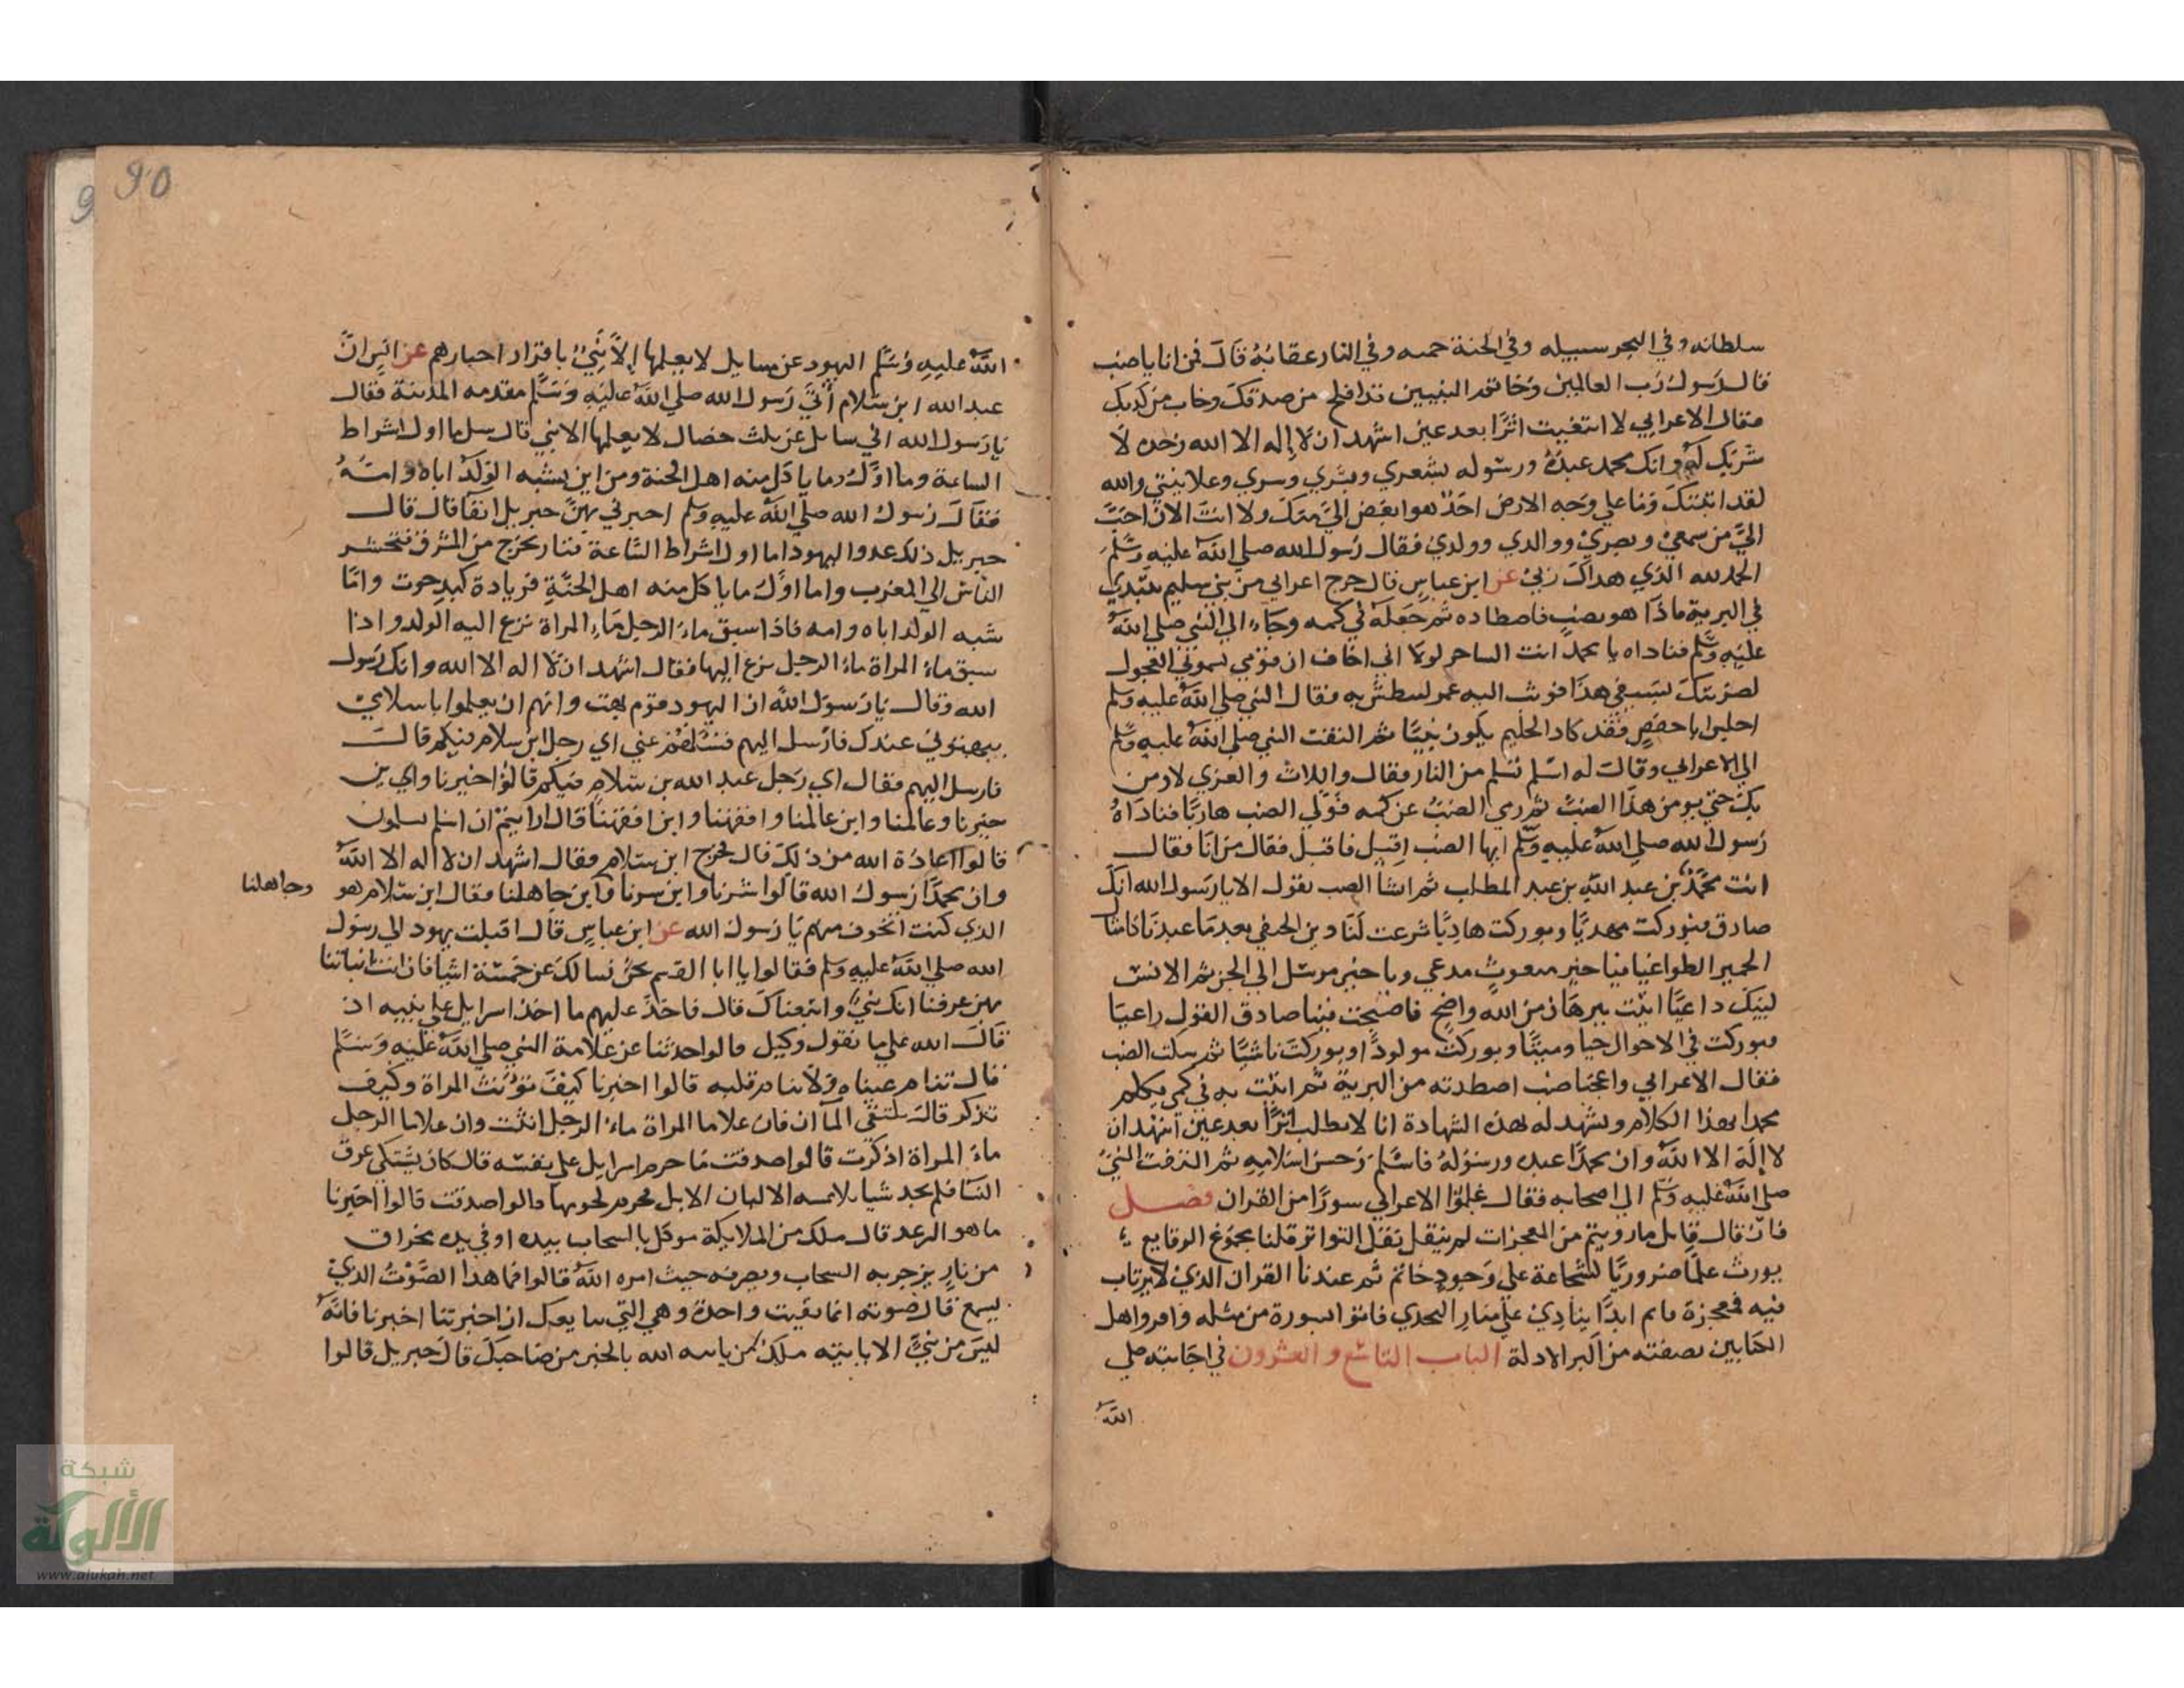 سلطانه وفي البحر سبيله وفي الجنة رحمته وفي النار عقابه قال فمن انا يا ضب
قال رسول رب العالمين وخاتم النبيين قد افلح من صدقك وخاب من كذبك
فقال الاعرابي لا ابتغيت اثرا بعد عين اشهد ان لا إله الا الله وحده لا
شريك له وانك محمد عبده ورسوله بشعري وبشري وسري وعلانيتي والله
لقد اتيتك وما على وجه الارض احد هو ابغض اليّ منك ولا انت الان احب
اليّ من سمعي وبصري ووالدي وولدي فقال رسول الله صلي الله عليه وسلم
الحمد لله الذي هداك ربي عن ابن عباس قال خرج اعرابي من بني سليم يتبدي
في البرية فاذا هو بضب فاصطاده ثم جعله في كمه وجاء الي النبي صلي الله
عليه وسلم فناداه يا محمد انت الساحر لولا اني اخاف ان قومي يسموني العجول
لضربتك بسيفي هذا فوثب اليه عمر ليبطش به فقال النبي صلي الله عليه وسلم
اجلس ابا حفص فقد كاد الحليم يكون نبيا ثم التفت النبي صلي الله عليه وسلم
الي الاعرابي وقال له اسلم تسلم من النار فقال واللات والعزي لا اومن
بك حتي يومن هذا الضب ثم رمي الضب عن كمه فولي الضب هاربا فناداه
رسول الله صلي الله عليه وسلم ايها الضب اقبل فاقبل فقال من انا فقال
انت محمد بن عبد الله بن عبد المطلب ثم انشا الضب يقول الا يا رسول الله انك
صادق فبوركت مهديا وبوركت هاديا شرعت لنا دين الحنفي بعد ما عبدنا كامثال
الحمير الطواغيا فيا خير مبعوث مدعي ويا خير مرسل الي الجن ثم الانس
لبيك داعيا اتيت ببرهان من الله واضح فاصبحت فينا صادق القول راعيا
فبوركت في الاحوال حيا وميتا وبوركت مولودا وبوركت ناشيا ثم سكت الضب
فقال الاعرابي واعجبا ضب اصطدته من البرية ثم اتيت به في كمي يكلم
محمدا بهذا الكلام ويشهد له بهذه الشهادة انا لا اطلب اثرا بعد عين اشهد ان
لا إله الا الله وان محمدا عبده ورسوله فاسلم وحسن اسلامه ثم التفت النبي
صلي الله عليه وسلم الي اصحابه فقال علموا الاعرابي سورا من القران فصل
فان قال قايل ما رويتم من المعجزات لم ينقل نقل التواتر قلنا مجموع الوقايع
يورث علما ضروريا كشجاعة علي وجود حاتم ثم عندنا القران الذي لا يرتاب
فيه معجزة قايم ابدا ينادي على منار التحدي فاتوا بسورة من مثله واقروا اهل
الكتابين بصفته من اكبر الادلة الباب التاسع والعشرون في اجابته صلي
الله
90
الله عليه وسلم اليهود عن مسايل لا يعلمها إلا نبي باقرار احبارهم عن انس ان
عبد الله ابن سلام أتي رسول الله صلي الله عليه وسلم مقدمه المدينة فقال
يا رسول الله اني سايلك عن ثلث خصال لا يعلمها الا نبي قال سل ما اول اشراط
الساعة وما اول ما ياكل منه اهل الجنة ومن اين يشبه الولد اباه وامه
فقال رسول الله صلي الله عليه وسلم اخبرني بهن جبريل انفا قال قال
جبريل ذلك عدو اليهود اما اول اشراط الساعة فنار تخرج من المشرق فتحشر
الناس الي المغرب واما اول ما ياكل منه اهل الجنة فزيادة كبد حوت واما
شبه الولد اباه وامه فاذا سبق ماء الرجل ماء المراة نزع اليه الولد واذا
سبق ماء المراة ماء الرجل نزع اليها فقال اشهد ان لا اله الا الله وانك رسول
الله وقال يا رسول الله ان اليهود قوم بهت وانهم ان يعلموا باسلامي
يبهتوني عندك فارسل اليهم فسلهم عني اي رجل ابن سلام فيكم قال
فارسل اليهم فقال اي رجل عبد الله بن سلام فيكم قالوا خيرنا وابن
خيرنا وعالمنا وابن عالمنا وافقهنا وابن افقهنا قال ارايتم ان اسلم تسلمون
قالوا اعاذه الله من ذلك قال فخرج ابن سلام فقال اشهد ان لا اله الا الله
وان محمدا رسول الله قالوا شرنا وابن شرنا وابن جاهلنا فقال ابن سلام هو
وجاهلنا
الذي كنت اتخوف منهم يا رسول الله عن ابن عباس قال اقبلت يهود الي رسول
الله صلي الله عليه وسلم فقالوا يا ابا القسم نحن نسالك عن خمسة اشيا فان انت انباتنا
بهن عرفنا انك نبي واتبعناك قال فاخذ عليهم ما اخذ اسرايل علي بنيه اذ
قال الله علي ما نقول وكيل قالوا حدثنا عن علامة النبي صلي الله عليه وسلم
قال تنام عيناه ولا ينام قلبه قالوا اخبرنا كيف تونث المراة وكيف
تذكر قال يلتقي المآان فان علا ما المراة ماء الرجل انثت وان علا ما الرجل
ماء المراة اذكرت قالوا صدقت ما حرم اسرايل علي نفسه قال كان يشتكي عرق
النسا فلم يجد شيا يلايمه الا البان الابل فحرم لحومها قالوا صدقت قالوا اخبرنا
ما هو الرعد قال ملك من الملايكة موكل بالسحاب بيده او في يده مخراق
من نار يزجر به السحاب ويصرفه حيث امره الله قالوا فما هذا الصوت الذي
يسمع قال صوته انما بقيت واحدة وهي التي نبايعك ان اخبرتنا اخبرنا فانه
ليس من نبي الا ياتيه ملك من ياتيه الله بالخبر من صاحبك قال جبريل قالوا
شبكة
الألوكة
www.alukah.net